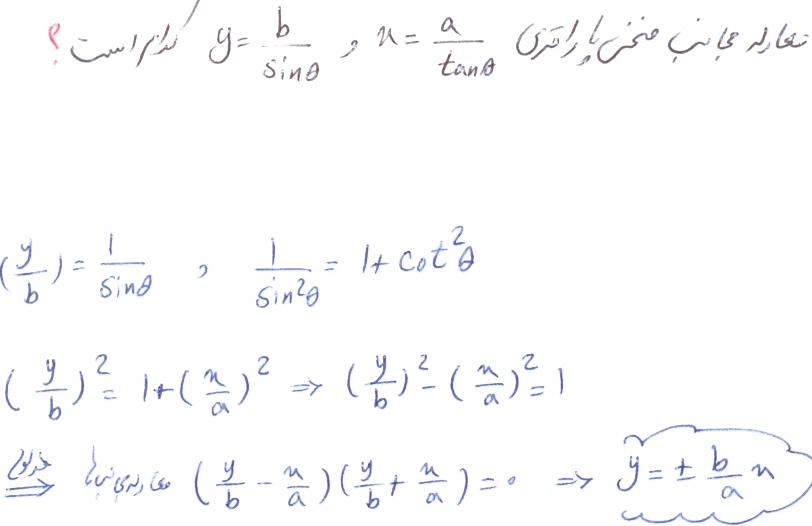 معادله مجانب منحنی پارامتری x = a/tanθ , y = b/sinθ کدام است ؟
(y/b) = 1/sinθ , 1/sin²θ = 1 + cot²θ
(y/b)² = 1 + (x/a)² ⇒ (y/b)² - (x/a)² = 1
هذلولی ⇒ معادله‌ی مجانب‌ها (y/b - x/a)(y/b + x/a) = 0 ⇒ y = ± b/a x